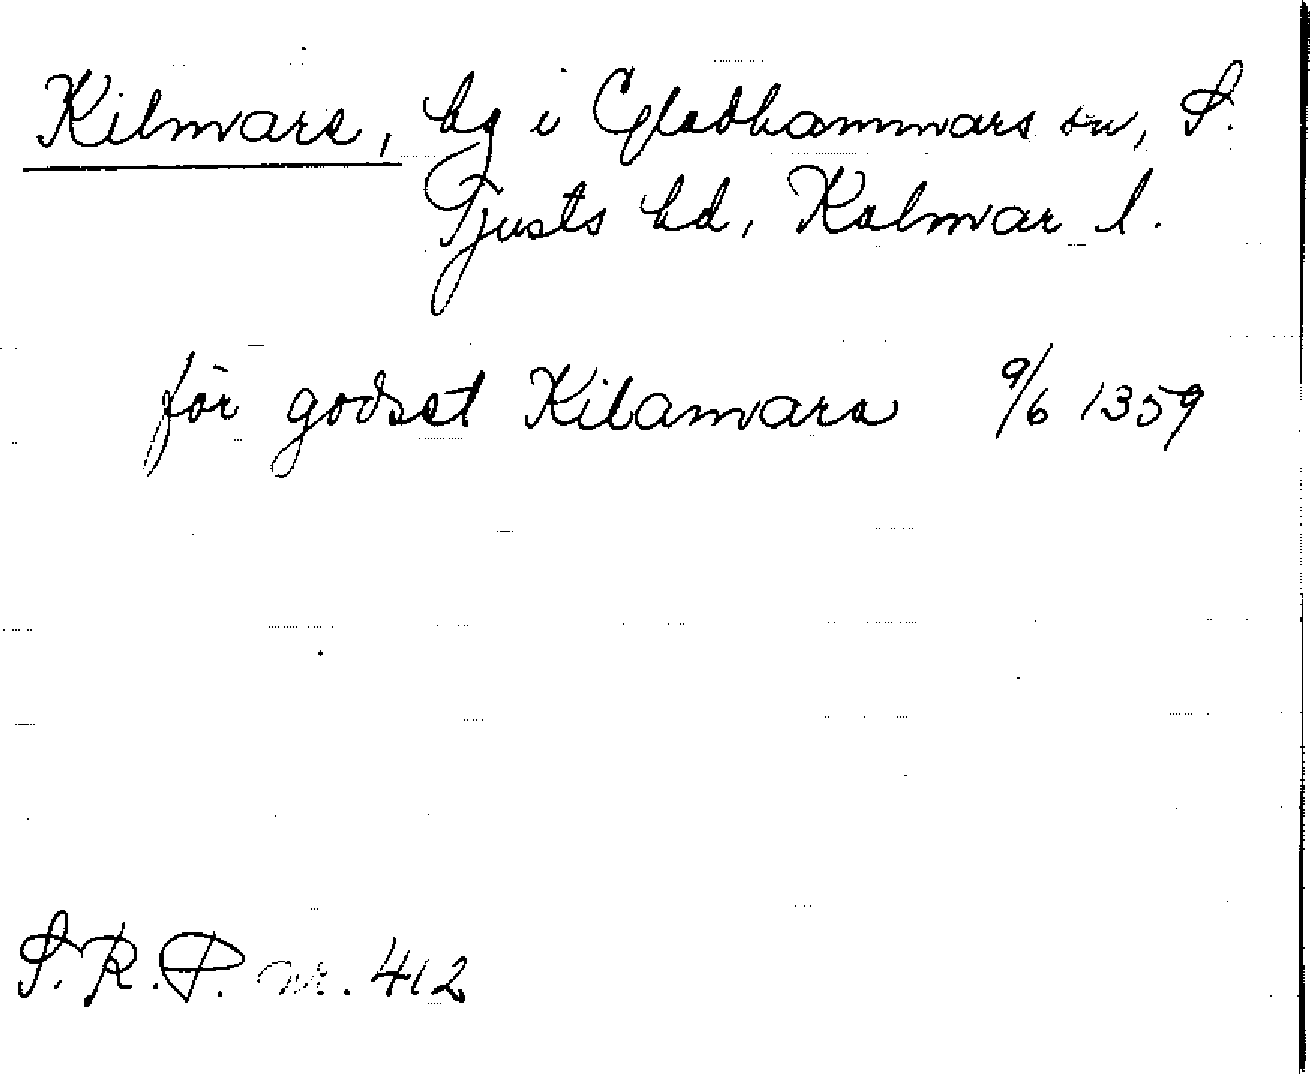 Kilmare, by i Gladhammars sn, S.
Tjusts hd, Kalmar l.
för godset Kilamara 9/6 1359
S.R.P. nr. 412